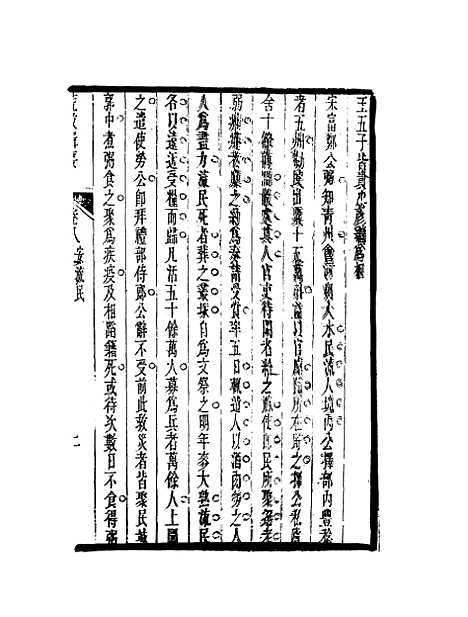 宋富鄭公弼知青州會河朔大水民流入境內公擇部內豐稔
者五州勸民出粟十五萬斛益以官廩隨所在貯之擇公私廬
舍十餘萬區散處其人官吏待闕者給之祿使即民所聚老
弱病瘠者廩之約為奏請受賞率五日輒遣人以酒肉勞之人
人為盡力流民死者葬之叢塚自為文祭之明年麥大熟流民
各以遠近受糧而歸凡活五十餘萬人募為兵者萬餘人上聞
之遣使勞公即拜禮部侍郎公辭不受前此救災者皆聚民城
郭中煮粥食之聚為疾疫及相蹈藉死或待次數日不食得粥
卷八 安流民